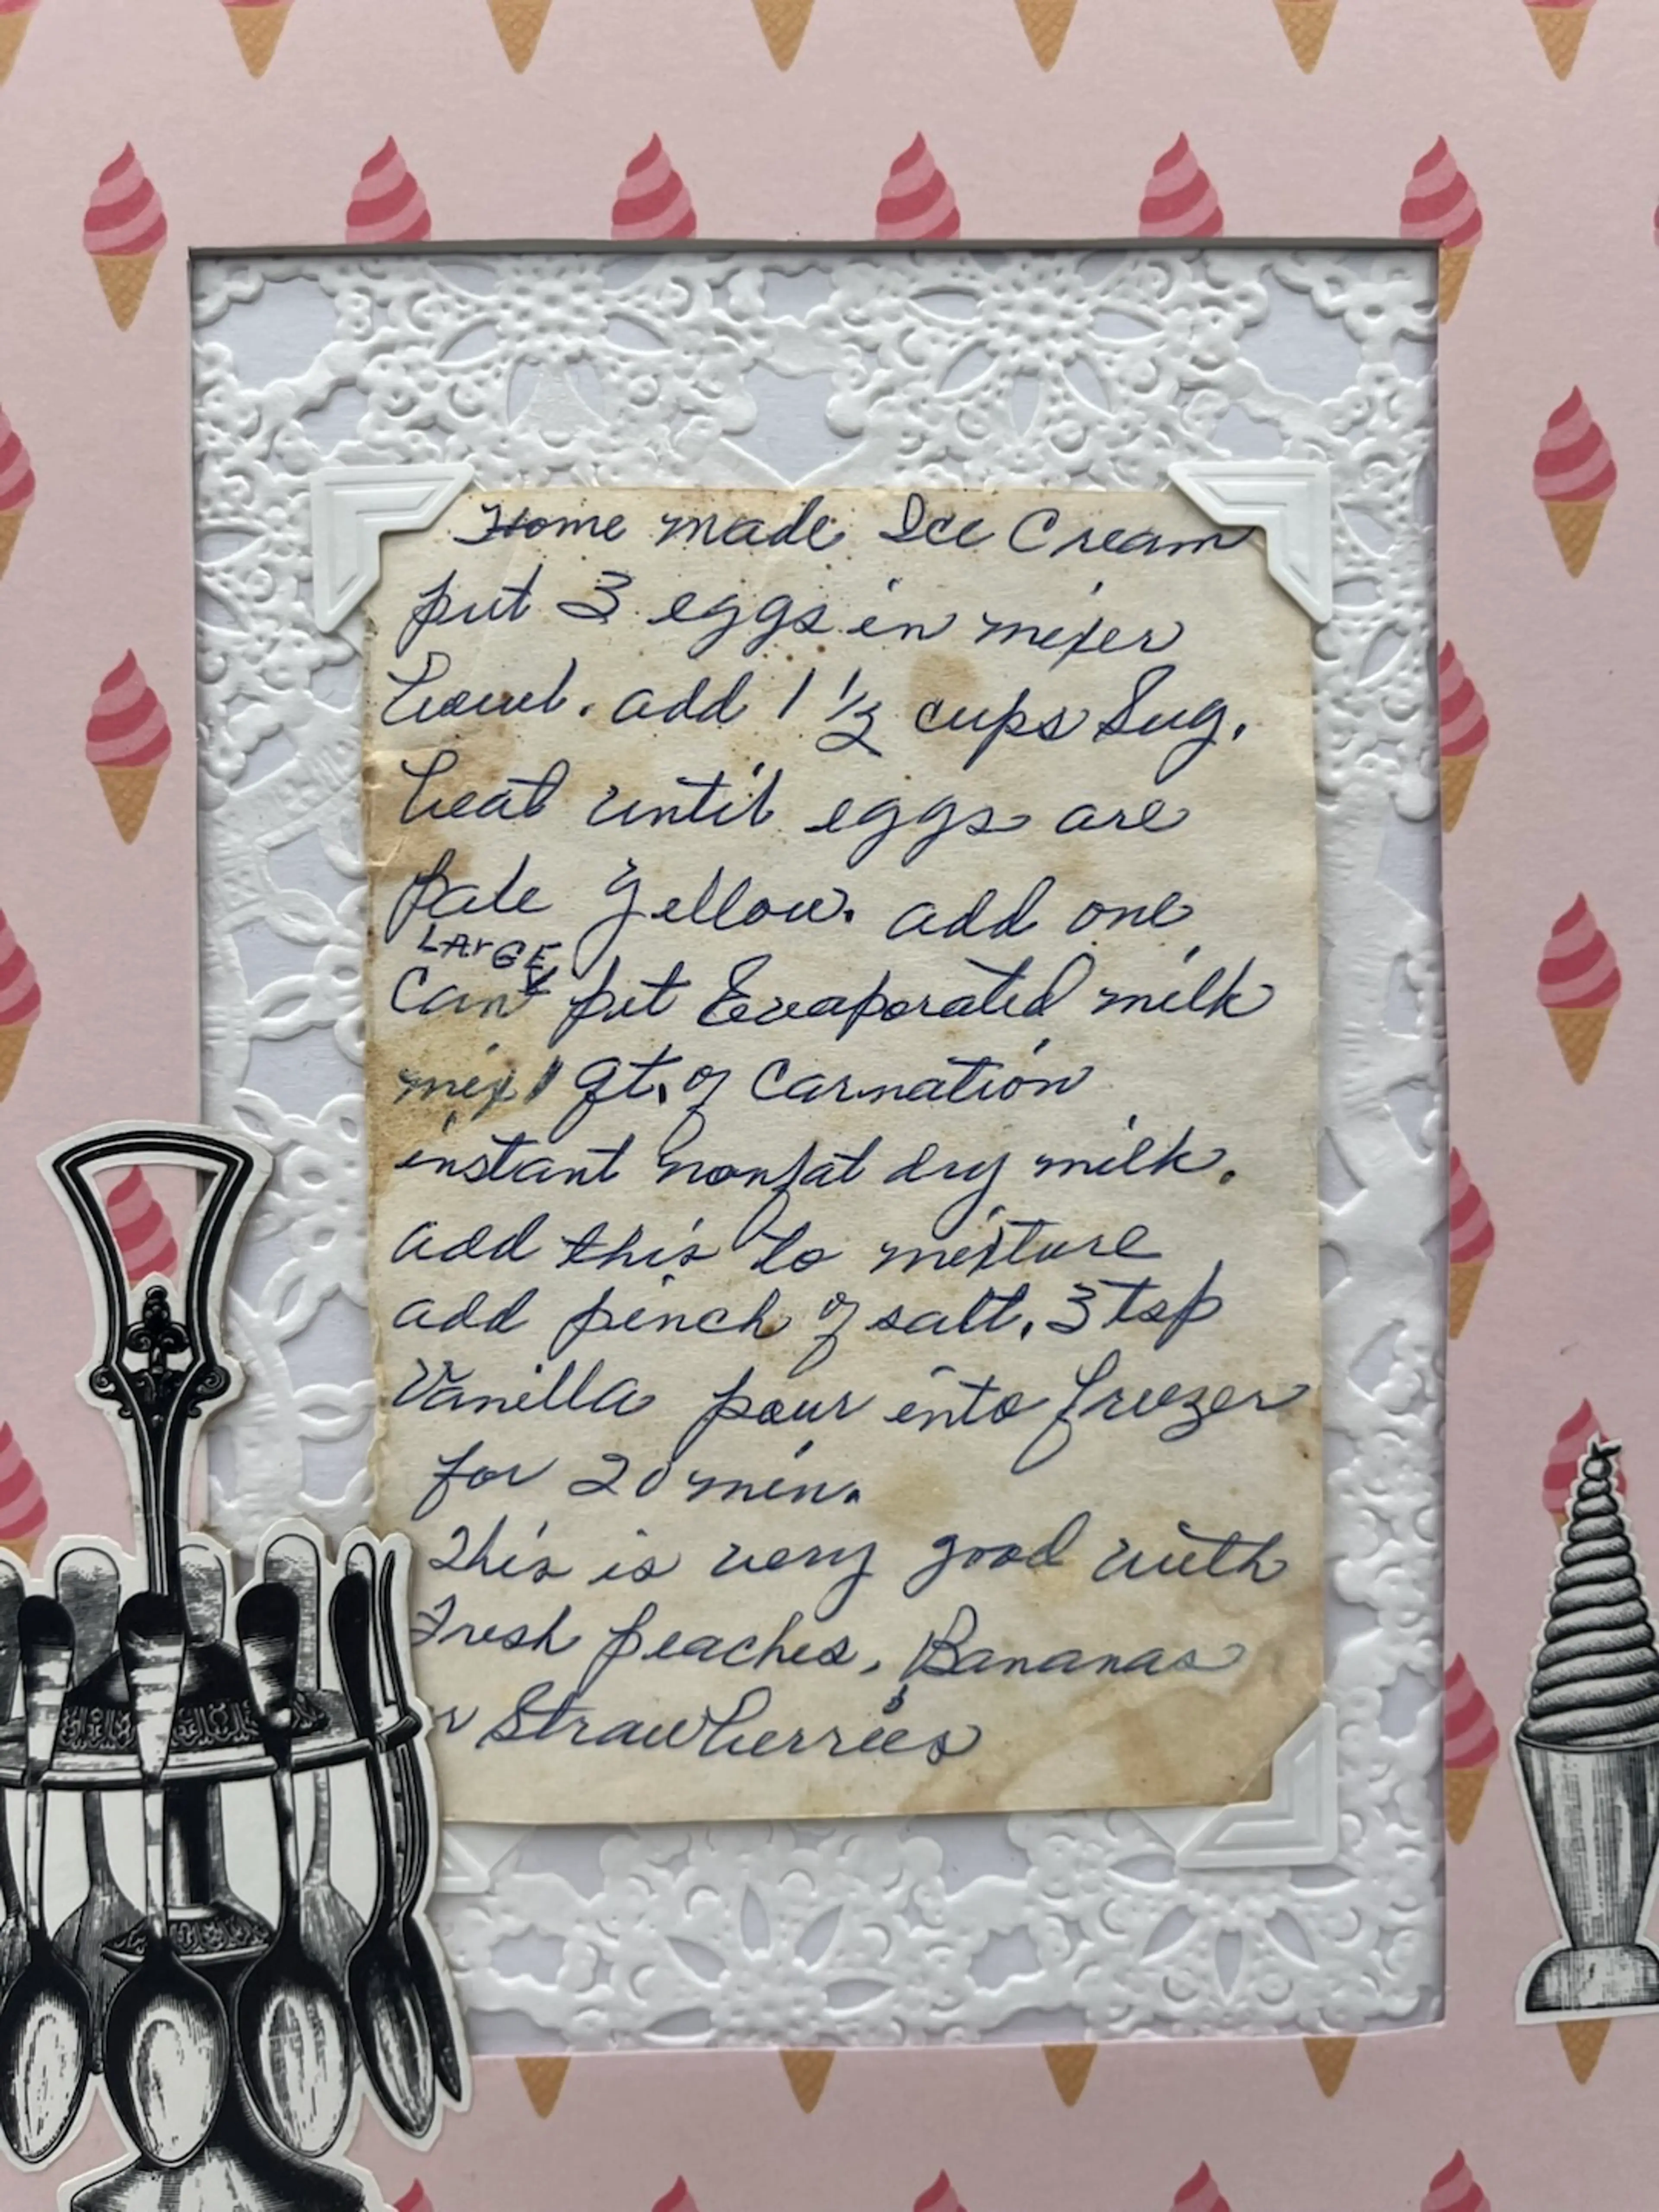 Home made Ice Cream
put 3 eggs in mixer
bowl. add 1 1/2 cups Sug.
beat until eggs are
pale yellow. add one
LArGE
Can pet Evaporated milk
mix 1 qt. of Carnation
instant nonfat dry milk.
add this to mixture
add pinch of salt, 3 tsp
Vanilla pour into freezer
for 20 min.
This is very good with
Fresh peaches, Bananas
r Strawberries